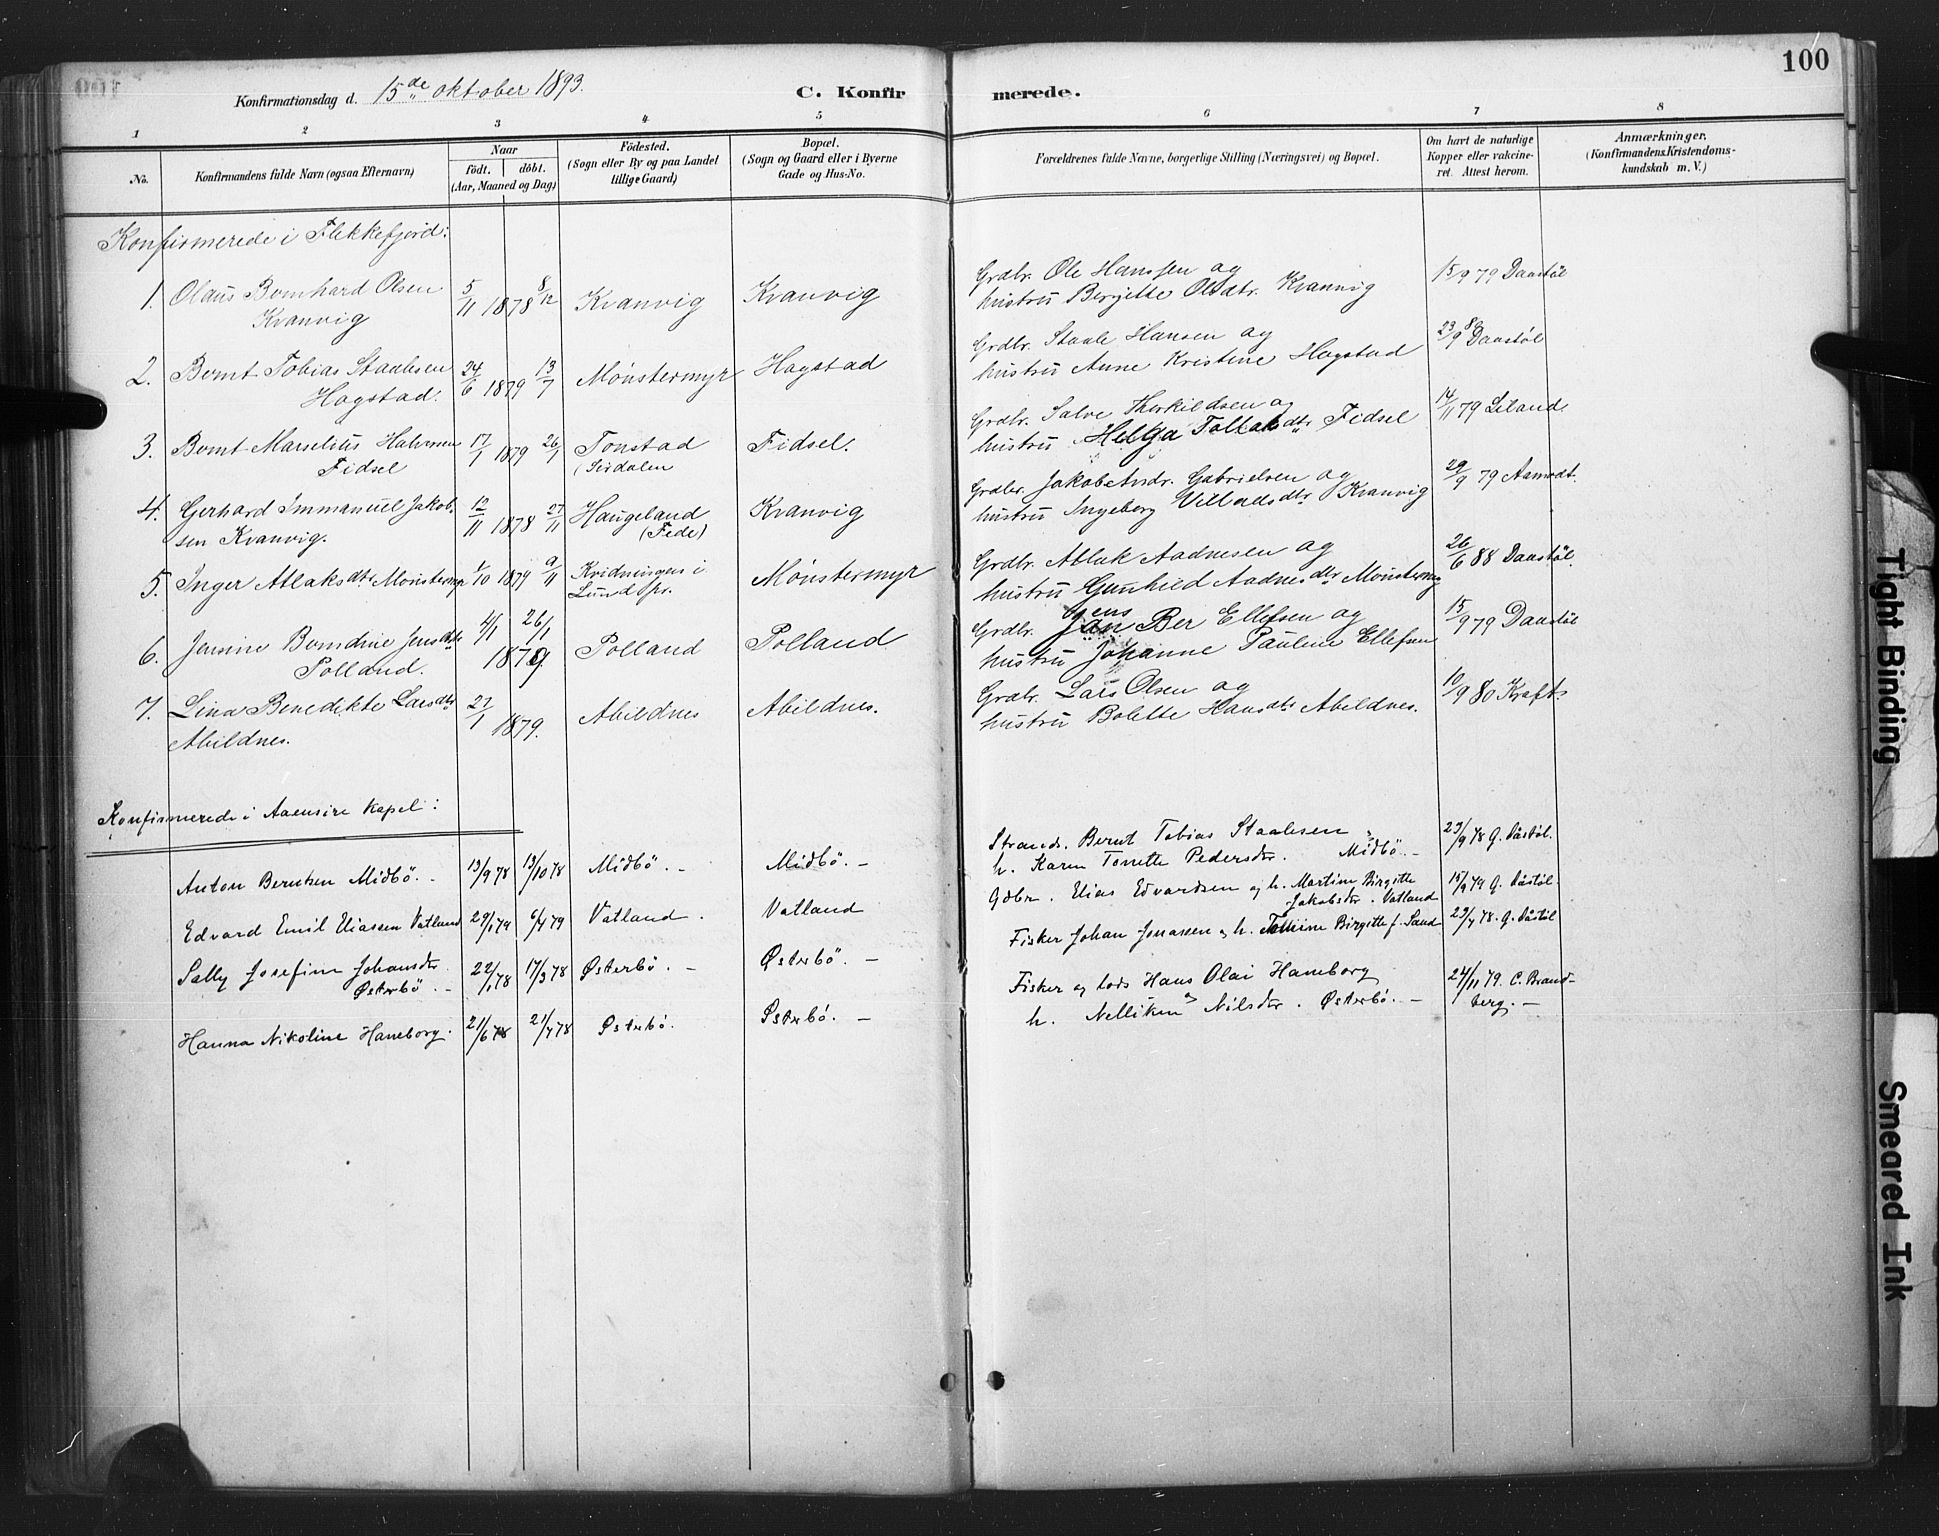 100
Konfirmationsdag d. 15de oktober 1893.
C. Konfirmerede.
1 2 3 4 5 6 7 8
No.
Konfirmandens fulde Navn (ogsaa Efternavn)
Naar
födt. döbt.
(Aar, Maaned og Dag)
Födested.
(Sogn eller By og paa Landet
tillige Gaard)
Bopæl.
(Sogn og Gaard eller i Byerne
Gade og Hus-No.
Forældrenes fulde Navne, borgerlige Stilling (Næringsvei) og Bopæl.
Om havt de naturlige
Kopper eller vakcine-
ret. Attest herom.
Anmærkninger.
(Konfirmandens Kristendoms-
kundskab m. V.)
Konfirmerede i Flekkefjord:
1. Olaus Bernhard Olsen 5/11 1878 8/12 Kvanvig Kvanvig Grdbr. Ole Hanssen og 15/9 79 Daastöl
Kvanvig hustru Berjitte Olsdtr. Kvanvig
2. Bernt Tobias Staalesen 24/6 1879 13/7 Mönstermyr Hogstad Grdbr. Staale Hansen og 23/9 80 Daastöl
Hogstad. hustru Anne Kristine Hogstad
3. Bernt Marselius Halvorsen 17/1 1879 26/1 Tonstad Fidsel. Grdbr. Salve Therkildsen og 14/11 79 Leland.
Fidsel (Sirdalen hustru Helga Tollaksdtr Fidsel
4. Gerhard Immanuel Jakob- 12/11 1878 27/11 Haugeland Kvanvig Grdbr. Jakob Andr. Gabrielsen og 29/9 79 Aamodt.
sen Kvanvig. (Fede) hustru Ingeborg Villadsdtr Kvanvig
5. Inger Atlaksdtr Mönstermyr 1/10 1879 9/11 Kvidningen i Mönstermyr Grdbr. Atlak Aadnesen og 26/6 88 Daastöl.
Lund pr. hustru Gunhild Aadnesdtr Mönstermyr
6. Jensine Berndine Jensdtr 4/1 26/1 Polland Polland Grdbr. Jens Ber Ellefsen og 15/9 79 Daastöl
Polland. 1879. hustru Johanne Pauline Ellefsen
7. Lina Benedikte Larsdtr 27/1 1879. Abildnes Abildnes. Grdbr. Lars Olsen og 10/9 80 Kraft.
Abildnes. hustru Bolette Hansdtr Abildnes.
Konfirmerede i Aaensire Kapel:
Anton Berntsen Midbö. 13/9 78 13/10 78 Midbö. Midbö. Strands. Bernt Tobias Staalesen 23/9 78 G. Dåstöl.
h. Karen Tonette Pedersdtr. Midbö.
Edvard Emil Eliassen Vatland 29/1 79 6/4 79 Vatland. Vatland Gdbr. Elias Edvardsen og h. Martine Birgitte 15/9 79 G. Dåstöl.
Jakobsdtr. Vatland
Sally Josefine Johansdtr 22/1 78 17/3 78 Østerbö. Østerbö. Fisker Johan Jonassen og h. Birgitte f. Sand 23/7 78. G. Dåstöl
Østerbö.
Hanna Nikoline Haneborg. 21/6 78 21/7 78 Østerbö. Østerbö. Fisker og lods Hans Olai Haneborg 24/11 79. C. Brand-
h. Nelliken Nilsdtr. Østerbö. berg.
Tight Binding
Smeared Ink